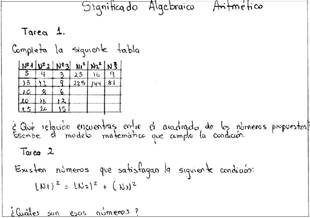 Significado Algebraico Aritmético
Tarea 1.
Completa la siguiente tabla
Nº1 Nº2 Nº3 N1² N2² N3²
5 4 3 25 16 9
15 12 9 225 144 81
10 8 6
20 16 12
25 20 15
¿Qué relación encuentras entre el cuadrado de los números propuestos?
Escribe el modelo matemático que cumple la condición.
Tarea 2
Existen números que satisfagan la siguiente condición:
(N1)² = (N2)² + (N3)²
¿Cuáles son esos números?